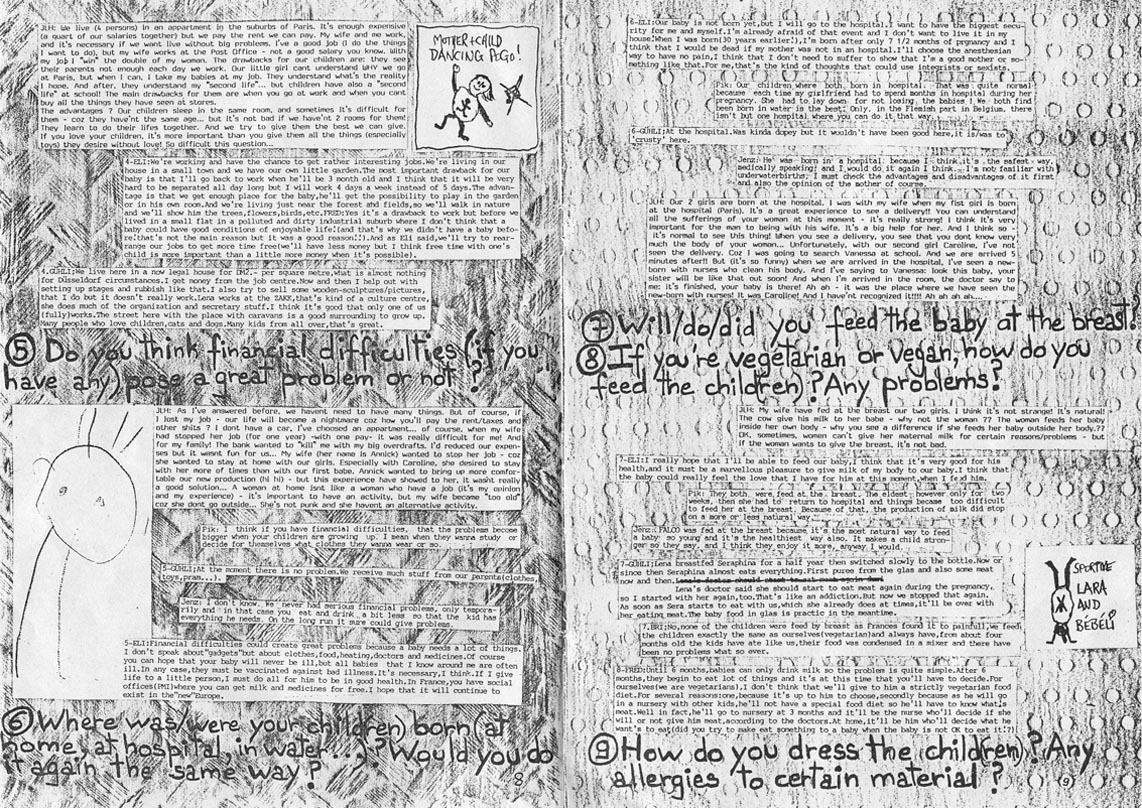 JLH: We live (4 persons) in an appartment in the suburbs of Paris. It's enough expensive
(a quart of our salaries together) but we pay the rent we can pay. My wife and me work,
and it's necessary if we want live without big problems. I've a good job (i do the things
I want to do), but my wife works at the Post Office - not a good salary you know. With
my job I "win" the double of my woman. The drawbacks for our children are: they see
their parents not enough each day we work. Our little girl cant understand WHY we go
at Paris, but when i can, I take my babies at my job. They understand what's the reality
I hope. And after, they understand my "second life"... but children have also a "second
life" at school! The main drawbacks for them are when you go at work and when you cant
buy all the things they have seen at stores.
The advantages ? Our children sleep in the same room, and sometimes it's difficult for
them - coz they have'nt the same age... but it's not bad if we have'nt 2 rooms for them!
They learn to do their lifes together. And we try to give them the best we can give.
If you love your children, it's more important than you give them all the things (especially
toys) they desire without love! So difficult this question...
MOTHER+CHILD
DANCING POGO!
4-ELI:We're working and have the chance to get rather interesting jobs.We're living in our
house in a small town and we have our own little garden.The most important drawback for our
baby is that I'll go back to work when he'll be 3 month old and I think that it will be very
hard to be separated all day long but I will work 4 days a week instead of 5 days.The advan-
tage is that we get enough place for the baby,he'll get the possibility to play in the garden
or in his own room.And we're living just near the forest and fields,so we'll walk in nature
and we'll show him the trees,flowers,birds,etc.FRED:Yes it's a drawback to work but before we
lived in a small flat in a polluted and dirty industrial suburb where I don't think that a
baby could have good conditions of enjoyable life!(and that's why we didn't have a baby befo-
re!that's not the main reason but it was a good reason!!).And as Eli said,we'll try to rear-
range our jobs to get more time free(we'll have less money but I think free time with one's
child is more important than a little more money when it's possible).
4.GUHLI:We live here in a now legal house for DM2.- pro square metre,what is almost nothing
for Düsseldorf circumstances.I get money from the job centre.Now and then I help out with
setting up stages and rubbish like that.I also try to sell some wooden-sculptures/pictures,
that I do but it doesn't really work.Lena works at the ZAKK,that's kind of a culture centre,
she does much of the organization and secretary stuff.I think it's good that only one of us
(fully)works.The street here with the place with caravans is a good surrounding to grow up.
Many people who love children,cats and dogs.Many kids from all over,that's great.
⑤ Do you think financial difficulties (if you
have any) pose a great problem or not ?
JLH: As I've answered before, we havent need to have many things. But of course, if
I lost my job - our life will become a nightmare coz how you'll pay the rent/taxes and
other shits ? I dont have a car, I've choosed an appartment... of course, when my wife
had stopped her job (for one year) -with one pay- it was really difficult for me! And
for my family! The bank wanted to "kill" me with my big overdrafts. I'd reduced our expen-
ses but it wasnt fun for us... My wife (her name is Annick) wanted to stop her job - coz
she wanted to stay at home with our girls. Especially with Caroline, she desired to stay
with her more of times than with our first baby. Annick wanted to bring up more comfor-
table our new production (hi hi) - but this experience have showed to her, it wasnt really
a good solution... A woman at home isnt like a woman who have a job (it's my opinion
and my experience) - it's important to have an activity, but my wife became "too old"
coz she dont go outside... She's not punk and she havent an alternative activity.
Pik: I think if you have financial difficulties, that the problems become
bigger when your children are growing up. I mean when they wanna study or
decide for themselves what clothes they wanna wear or so.
5-GÜHLI:At the moment there is no problem.We receive much stuff from our parents(clothes,
toys,pram...).
Jenz: I don't know. We never had serious financial problems, only tempora-
rily and in that case you eat and drink a bit less so that the kid has
everything he needs. On the long run it sure could give problems.
5-ELI:Financial difficulties could create great problems because a baby needs a lot of things.
I don't speak about"gadgets"but about clothes,food,heating,doctors and medicines.Of course
you can hope that your baby will never be ill,but all babies that I know around me are often
ill.In any case,they must be vaccinated against bad illness.It's necessary,I think.If I give
life to a little person,I must do all for him to be in good health.In France,you have social
offices(PMI)where you can get milk and medicines for free.I hope that it will continue to
exist in the"new"Europe.
⑥ Where was/were your child(ren) born (at
home, at hospital, in water...)? Would you do
it again the same way ?
8
6-ELI:Our baby is not born yet,but I will go to the hospital.I want to have the biggest secu-
rity for me and myself.I'm already afraid of that event and I don't want to live it in my
house!When I was born(30 years earlier!),I'm born after only 7 1/2 months of prgnancy and I
think that I would be dead if my mother was not in an hospital.I'll choose the anesthesian
way to have no pain,I think that I don't need to suffer to show that I'm a good mother or so-
mething like that.For me,that's the kind of thoughts that could use integrists or sexists.
Pik: Our children where both born in hospital. That was quite normal
because each time my girlfriend had to spend months in hospital during her
pregnancy. She had to lay down for not losing the babies ! We both find
been born in water is the best. Only, in the Flemish part in Belgium, there
isn't but one hospital where you can do it that way.
6-GUHLI:At the hospital.Was kinda dopey but it wouldn't have been good here,it is/was to
'crusty' here.
Jenz: He was born in a hospital because I think it's the safest way,
medically speaking; and I would do it again I think. I'm not familiar with
underwaterbirth; I must check the advantages and disadvantages of it first
and also the opinion of the mother of course.
JLH: Our 2 girls are born at the hospital. I was with my wife when my fist girl is born
at the hospital (Paris). It's a great experience to see a delivery!! You can understand
all the sufferings of your woman at this moment - it's really strong! I think It's very
important for the man to being with his wife. It's a big help for her. And I think so -
it's normal to see this thing! When you see a delivery, you see that you dont know very
much the body of your woman... Unfortunately, with our second girl Caroline, I've not
seen the delivery. Coz I was going to search Vanessa at school. And we are arrived 5
minutes after!! But (it's so funny) when we are arrived in the hospital, I've seen a new-
born with nurses who clean his body. And I've saying to Vanessa: look this baby, your
sister will be like that out soon! And when I'm arrived in the room, the doctor say to
me: it's finished, your baby is there! Ah ah - it was the place where we have seen the
new-born with nurses! It was Caroline! And I have'nt recognized it!!!! Ah ah ah ah....
⑦ Will/do/did you feed the baby at the breast?
⑧ If you're vegetarian or vegan, how do you
feed the child(ren)? Any problems?
JLH: My wife have fed at the breast our two girls. I think it's not strange! It's natural!
The cow give his milk to her babe - why not the woman ?? The woman feeds her baby
inside her own body - why you see a difference if she feeds her baby outside her body.??
OK, sometimes, women can't give her maternal milk for certain reasons/problems - but
if the woman wants to give the breast, it's not bad.
7-ELI:I really hope that I'll be able to feed our baby,I think that it's very good for his
health,and it must be a marvellous pleasure to give milk of my body to our baby.I think that
the baby could really feel the love that I have for him at this moment,when I feed him.
Pik: They both were feed at the breast. The eldest however only for two
weeks, then she had to return to hospital and things became too difficult
to feed her at the breast. Because of that, the production of milk did stop
on a more or less natural way.
Jenz: FALCO was fed at the breast because it's the most natural way to feed
a baby so young and it's the healthiest way also. It makes a child stron-
ger so they say, and I think they enjoy it more, anyway I would.
7-GUHLI:Lena breastfed Seraphina for a half year then switched slowly to the bottle.Now or
since then Seraphina almost eats everything.First puree from the glass and also some meat
now and then.
Lena's doctor said she should start to eat meat again during the pregnancy,
so I started with her again,too.That's like an addiction.But now we stopped that again.
As soon as Sera starts to eat with us,which she already does at times,it'll be over with
her eating meat.The baby food in glass is practice in the meantime.
7.BRI:No,none of the children were feed by breast as Frances found it to painfull,we feed
the children exactly the same as ourselves(vegetarian)and always have,from about four
months old the kids have ate like us,their food was condensed in a mixer and there have
been no problems what so ever.
SPORTIVE
LARA
AND
BEBELI
8-FRED:Until 6 months,babies can only drink milk so the problem is quite simple.After 6
months,they begin to eat lot of things and it's at this time that you'll have to decide.For
ourselves(we are vegetarians),I don't think that we'll give to him a strictly vegetarian food
diet.For several reasons:one,because it's up to him to choose,secondly because as he will go
in a nursery with other kids,he'll not have a special food diet so he'll have to know what's
meat.Well in fact,he'll go to nursery at 3 months and it'll be the nurse who'll decide if she
will or not give him meat,according to the doctors.At home,it'll be him who'll decide what he
want's to eat(did you try to make eat something to a baby when the baby is not OK to eat it!?)
⑨ How do you dress the child(ren)? Any
allergies to certain material ?
9